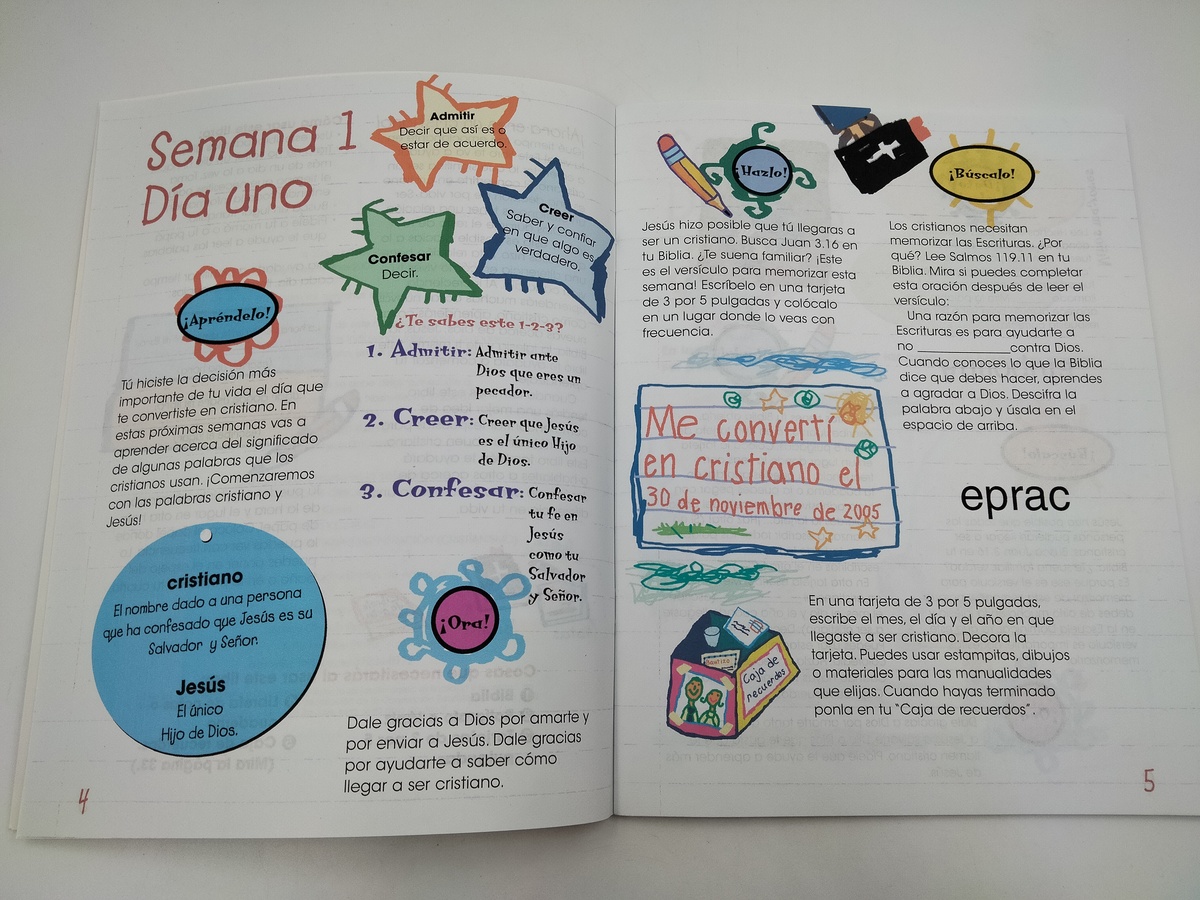 Semana 1
Día uno
Admitir
Decir que así es o
estar de acuerdo.
Creer
Saber y confiar
en que algo es
verdadero.
Confesar
Decir.
¡Apréndelo!
Tú hiciste la decisión más
importante de tu vida el día que
te convertiste en cristiano. En
estas próximas semanas vas a
aprender acerca del significado
de algunas palabras que los
cristianos usan. ¡Comenzaremos
con las palabras cristiano y
Jesús!
cristiano
El nombre dado a una persona
que ha confesado que Jesús es su
Salvador y Señor.
Jesús
El único
Hijo de Dios.
4
¿Te sabes este 1-2-3?
1. Admitir: Admitir ante
Dios que eres un
pecador.
2. Creer: Creer que Jesús
es el único Hijo
de Dios.
3. Confesar: Confesar
tu fe en
Jesús
como tu
Salvador
y Señor.
¡Ora!
Dale gracias a Dios por amarte y
por enviar a Jesús. Dale gracias
por ayudarte a saber cómo
llegar a ser cristiano.
¡Hazlo!
Jesús hizo posible que tú llegaras a
ser un cristiano. Busca Juan 3.16 en
tu Biblia. ¿Te suena familiar? ¡Este
es el versículo para memorizar esta
semana! Escríbelo en una tarjeta
de 3 por 5 pulgadas y colócalo
en un lugar donde lo veas con
frecuencia.
Me convertí
en cristiano el
30 de noviembre de 2005
¡Búscalo!
Los cristianos necesitan
memorizar las Escrituras. ¿Por
qué? Lee Salmos 119.11 en tu
Biblia. Mira si puedes completar
esta oración después de leer el
versículo:
Una razón para memorizar las
Escrituras es para ayudarte a
no ______________contra Dios.
Cuando conoces lo que la Biblia
dice que debes hacer, aprendes
a agradar a Dios. Descifra la
palabra abajo y úsala en el
espacio de arriba.
eprac
Bautizo
Caja de
recuerdos
En una tarjeta de 3 por 5 pulgadas,
escribe el mes, el día y el año en que
llegaste a ser cristiano. Decora la
tarjeta. Puedes usar estampitas, dibujos
o materiales para las manualidades
que elijas. Cuando hayas terminado
ponla en tu "Caja de recuerdos".
5